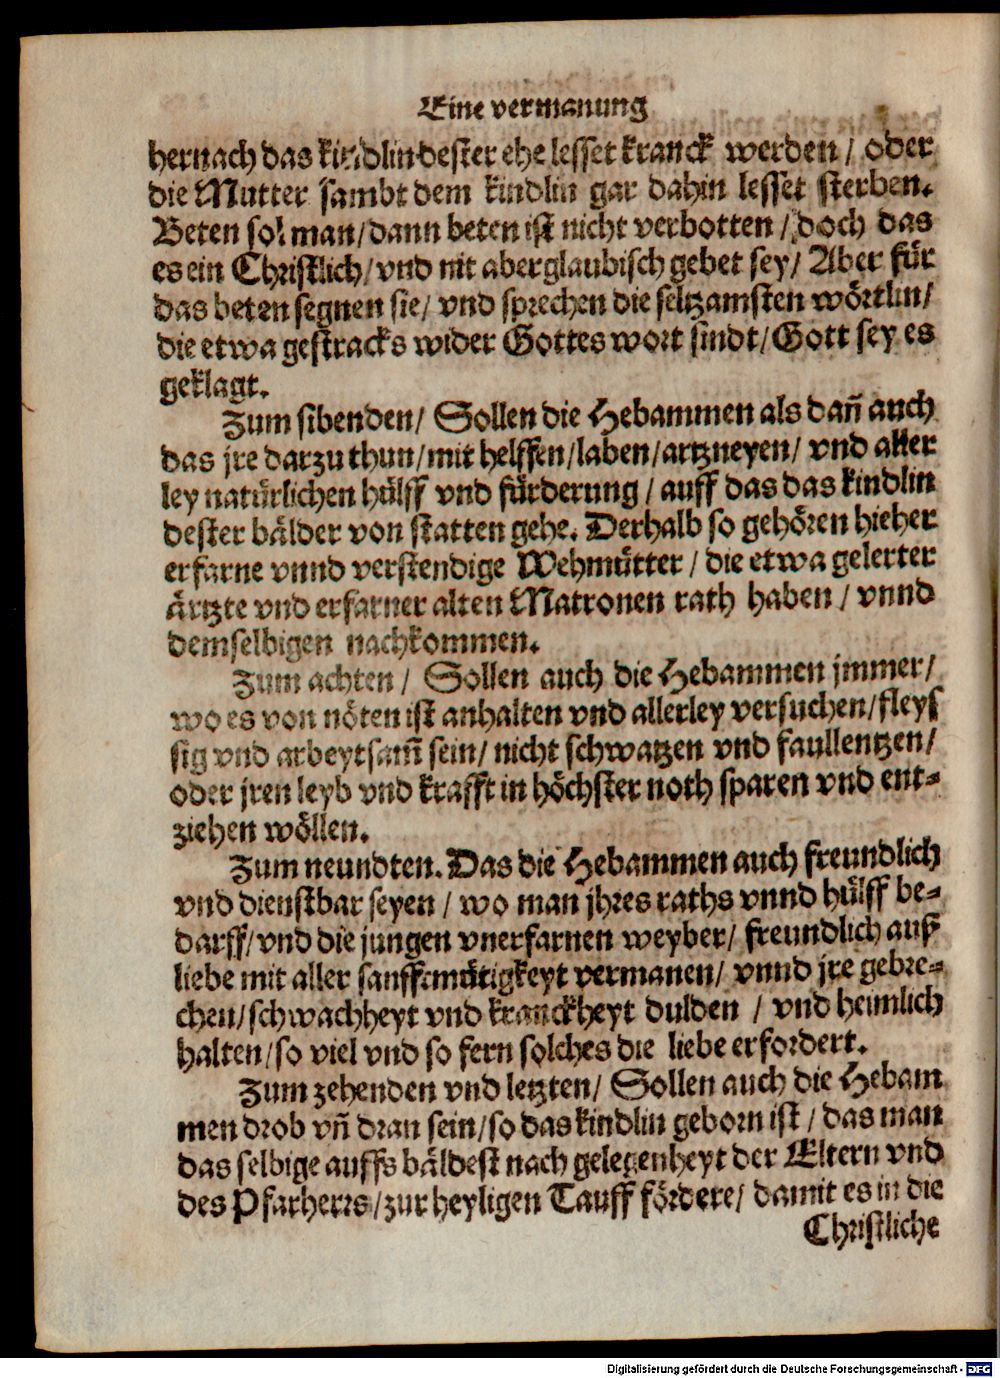 Eine vermanung
hernach das kindlin dester ehe lesset kranck werden / oder
die Mutter sambt dem kindlin gar dahin lesset sterben.
Beten sol man / dann beten ist nicht verbotten / doch das
es ein Christlich / vnd nit aberglaubisch gebet sey / Aber für
das beten segnen sie / vnd sprechen die seltzamsten wörtlin /
die etwa gestracks wider Gottes wort sindt / Gott sey es
geklagt.
Zum sibenden / Sollen die Hebammen als dañ auch
das jre darzu thun / mit helffen / laben / artzneyen / vnd aller
ley natürlichen hülff vnd fürderung / auff das das kindlin
dester bälder von statten gehe. Derhalb so gehören hieher
erfarne vnnd verstendige Wehmütter / die etwa gelerter
ärtzte vnd erfarner alten Matronen rath haben / vnnd
demselbigen nachkommen.
Zum achten / Sollen auch die Hebammen jmmer /
wo es von nöten ist anhalten vnd allerley versuchen / fleys
sig vnd arbeytsam̃ sein / nicht schwatzen vnd faullentzen /
oder jren leyb vnd krafft in höchster noth sparen vnd ent-
ziehen wöllen.
Zum neundten. Das die Hebammen auch freundlich
vnd dienstbar seyen / wo man jhres raths vnnd hülff be-
darff / vnd die jungen vnerfarnen weyber / freundlich auß
liebe mit aller sanfftmütigkeyt vermanen / vnnd jre gebre-
chen / schwachheyt vnd kranckheyt dulden / vnd heimlich
halten / so viel vnd so fern solches die liebe erfordert.
Zum zehenden vnd letzten / Sollen auch die Hebam
men drob vñ dran sein / so das kindlin geborn ist / das man
das selbige auffs bäldest nach gelegenheyt der Eltern vnd
des Pfarherrs / zur heyligen Tauff fördere / damit es in die
Christliche
Digitalisierung gefördert durch die Deutsche Forschungsgemeinschaft - DFG